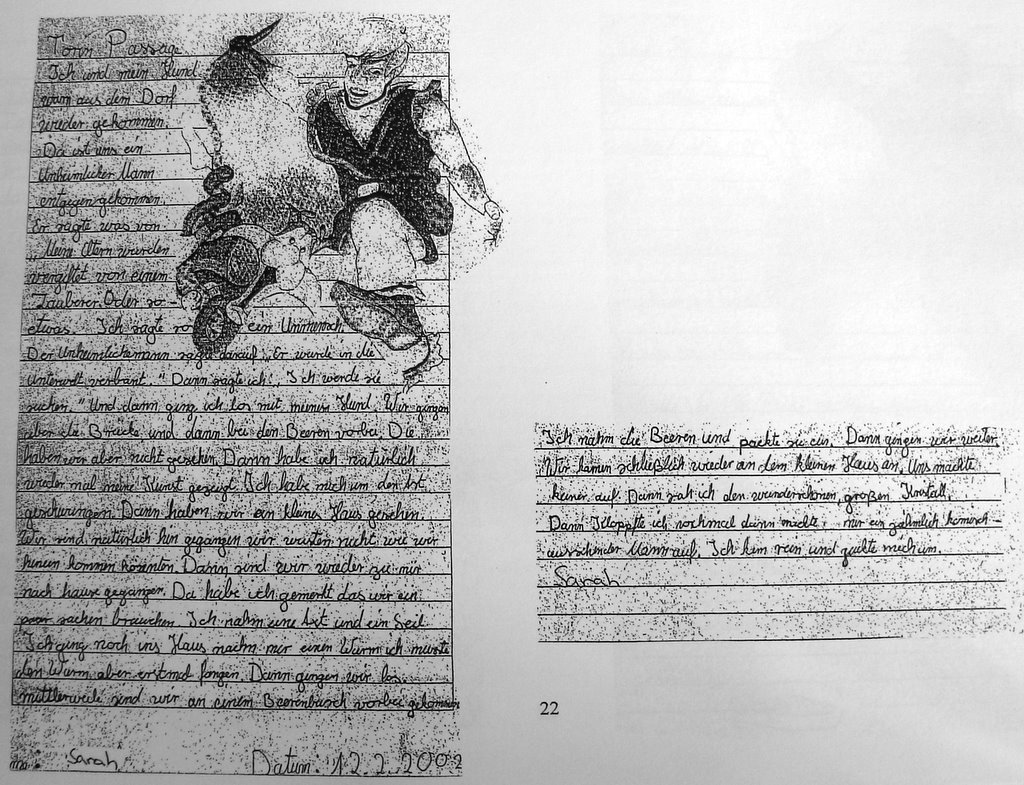 Torin Passage
Ich und mein Hund
warn aus dem Dorf
wieder gekommen.
Da ist uns ein
Unheimlicker Mann
entgegen gekommen.
Er sagte was von
„Meine Eltern wurden
vergiftet von einem
Zauberer Oder so-
etwas. Ich sagte so ein Unmensch
Der Unheimlichemann sagte darauf „Er wurde in die
Unterwelt verbant." Dann sagte ich „Ich werde sie
suchen." Und dann ging ich los mit meinem Hund. Wir gingen
über die Brücke und dann bei den Beeren vorbei. Die
haben wir aber nicht gesehen. Dann habe ich natürlich
wieder mal meine Kunst gezeigt. Ich habe mich um den Ast
geschwungen. Dann haben wir ein kleines Haus gesehen
Wir sind natürlich hin gegangen wir wusten nicht wie wir
hinein kommen könnten. Dann sind wir wieder zu mir
nach hause gegangen. Da habe ich gemerkt das wir ein
paar sachen brauchen. Ich nahm eine Axt und ein Seil
Ich ging noch ins Haus nachm mir einen Wurm ich musste
den Wurm aber erstmal fangen. Dann gingen wir los.
mittlerweile sind wir an einem Beerenbusch vorbei gekommen
Sarah Datum. 12.2.2002
Ich nahm die Beeren und packte sie ein. Dann gingen wir weiter.
Wir kamen schließlich wieder an dem kleinen Haus an. Uns machte
keiner auf. Dann sah ich den wunderschönen großen Kristall.
Dann kloppte ich nochmal dann machte mir ein zähmlich komisch-
aussehender Mann auf. Ich kam rein und guckte mich um.
Sarah
22